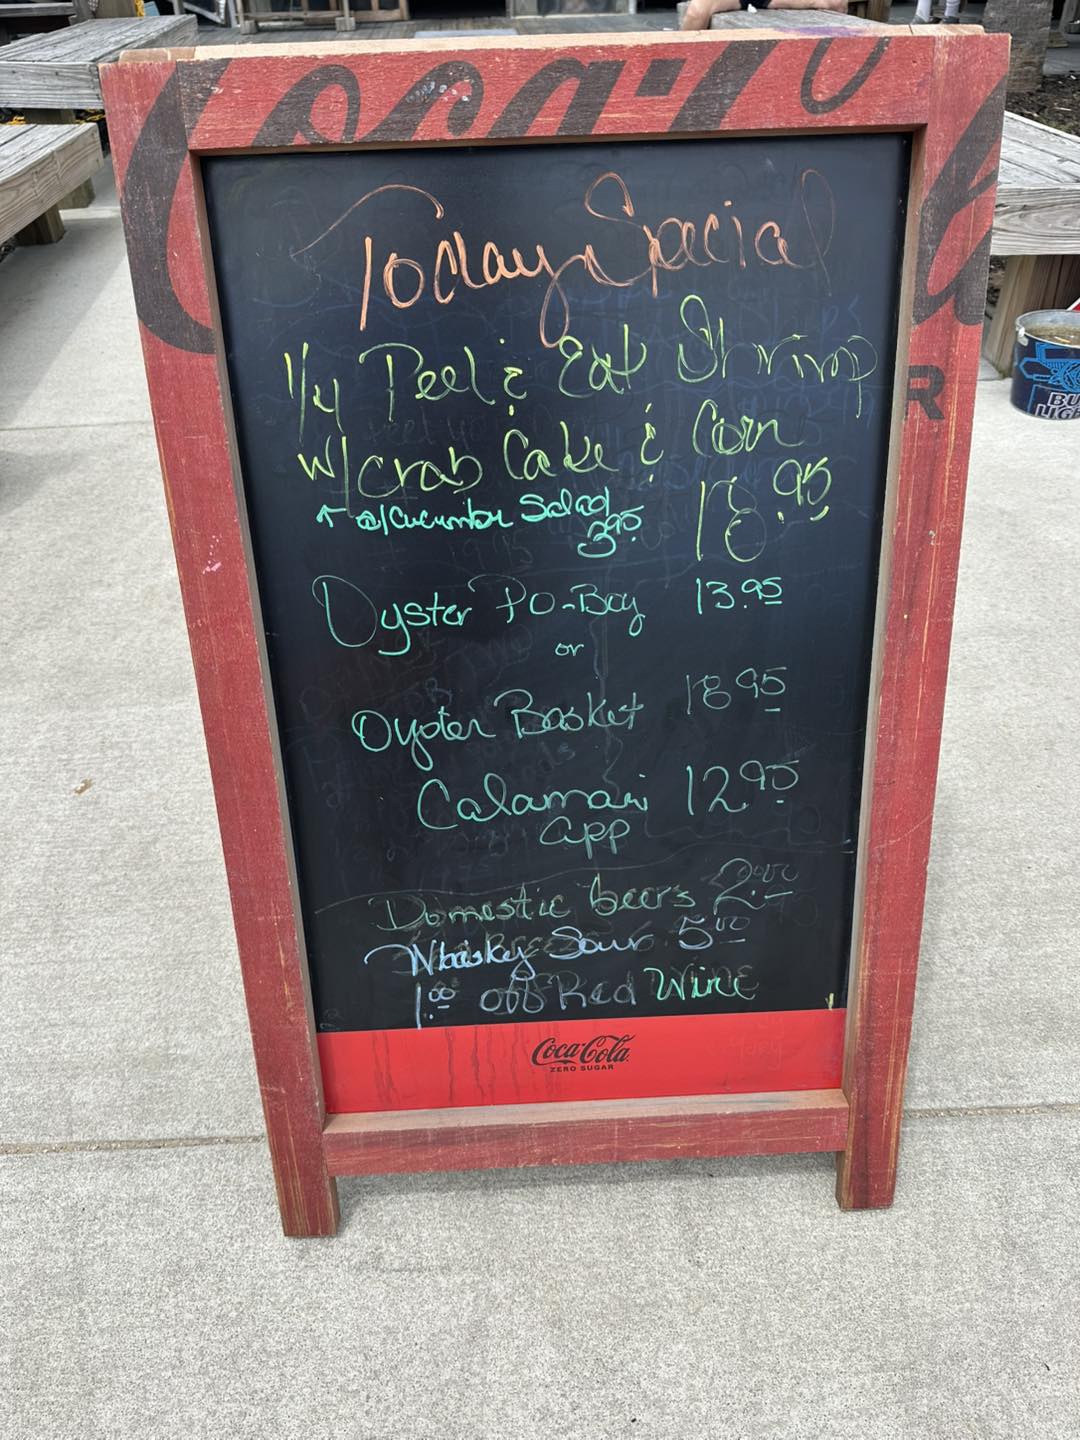 Coca-Co
Today Special
1/4 Peel & Eat Shrimp
w/ Crab Cake & Corn
18.95
w/Cucumber Salad
3.95
Oyster Po-Boy 13.95
or
Oyster Basket 18 95
Calamari 12 95
app
Domestic beers 2.00
Whisky Sour 5.00
1.00 off Red Wine
Coca-Cola
ZERO SUGAR
R
BU
LIGH